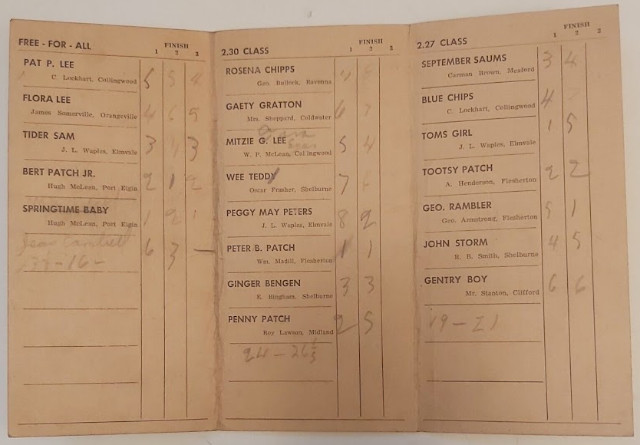 FREE - FOR - ALL
FINISH
1 2 3
PAT P. LEE
C. Lockhart, Collingwood 5 5 4
FLORA LEE
James Somerville, Orangeville 4 6 5
TIDER SAM
J. L. Waples, Elmvale 3 4 3
BERT PATCH JR.
Hugh McLean, Port Elgin 2 1 2
SPRINGTIME BABY
Hugh McLean, Port Elgin 1 2 1
6 3 -
- 16 -
2.30 CLASS
FINISH
1 2 3
ROSENA CHIPPS
Geo. Bullock, Ravenna
GAETY GRATTON
Mrs. Sheppard, Coldwater 6
MITZIE G. LEE
W. P. McLean, Collingwood 5 4
WEE TEDDY
Oscar Proctor, Shelburne 7
PEGGY MAY PETERS
J. L. Waples, Elmvale 8 2
PETER B. PATCH
Wm. Madill, Flesherton 1 1
GINGER BENGEN
E. Bingham, Shelburne 3 3
PENNY PATCH
Roy Lawson, Midland 2 5
24 - 26½
2.27 CLASS
FINISH
1 2 3
SEPTEMBER SAUMS
German Brown, Meaford 3 4
BLUE CHIPS
C. Lockhart, Collingwood 4
TOMS GIRL
J. L. Waples, Elmvale 1 5
TOOTSY PATCH
A. Henderson, Flesherton 2 2
GEO. RAMBLER
Geo. Armstrong, Flesherton 5 1
JOHN STORM
R. B. Smith, Shelburne 4 5
GENTRY BOY
Mr. Stanton, Clifford 6 6
19 - 21